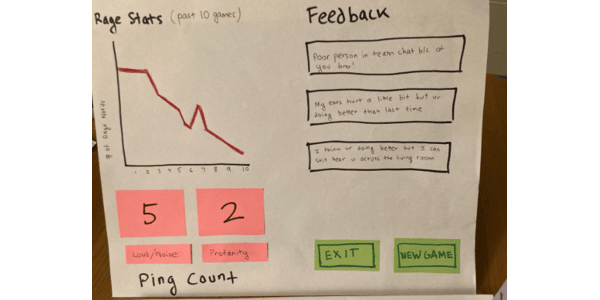 Rage Stats (past 10 games)
# of Rage Words
1 2 3 4 5 6 7 8 9 10
5
2
Loud/Noise
Profanity
Ping Count
Feedback
Poor person in team chat b/c of
you bro!
My ears hurt a little bit but ur
doing better than last time
I think ur doing better but I can
still hear u across the living room
EXIT
NEW GAME